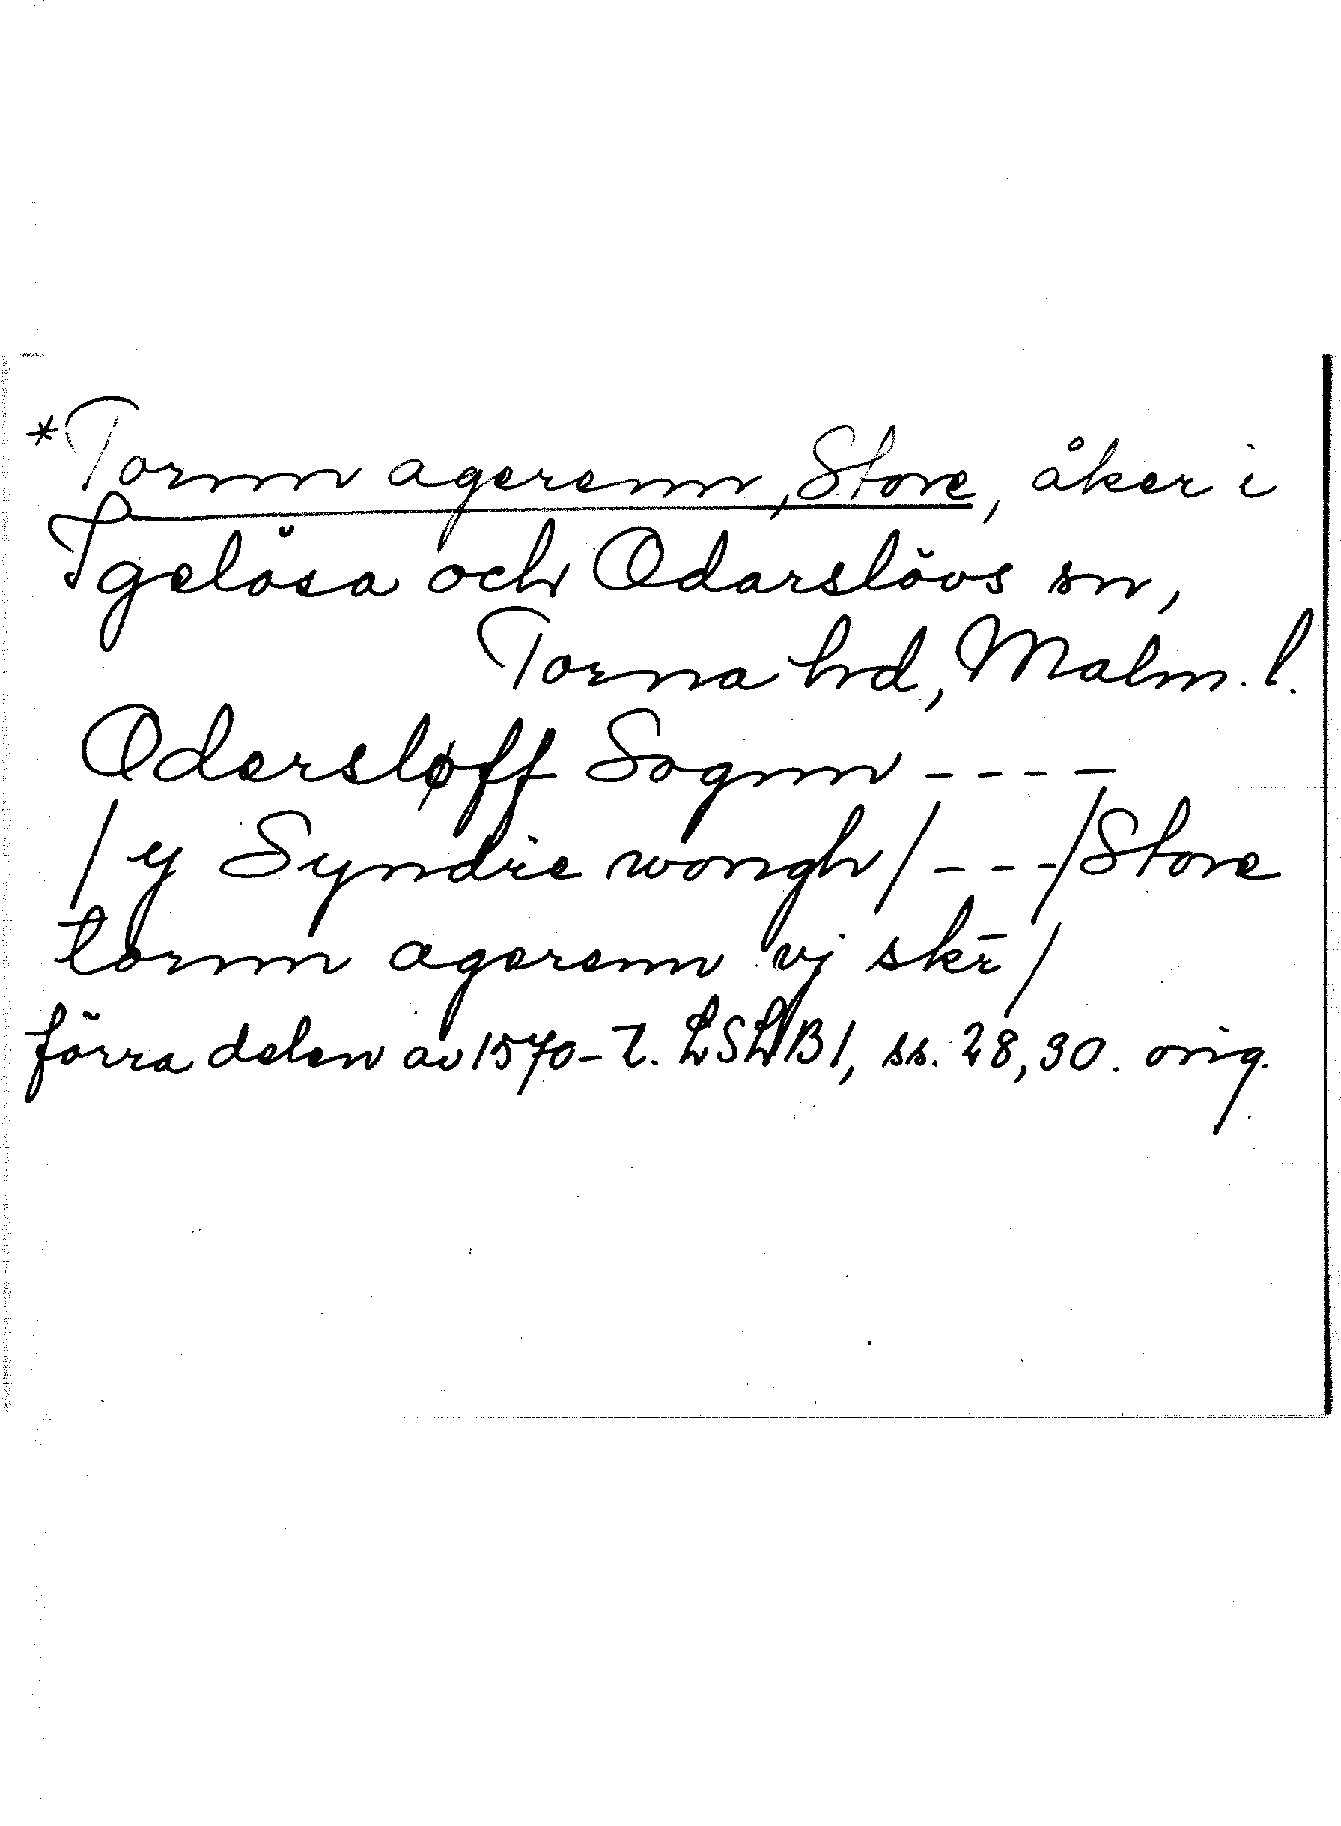 *Tornn agerenn, Store, åker i
Igelösa och Odarslövs sn,
Torna hd, Malm. l.
Odersløff Sognn ----
/ y Syndre wongh / --- / Store
tornn agerenn vj skr̄ /
förra delen av 1570-t. LSLB1, ss. 28, 30. orig.